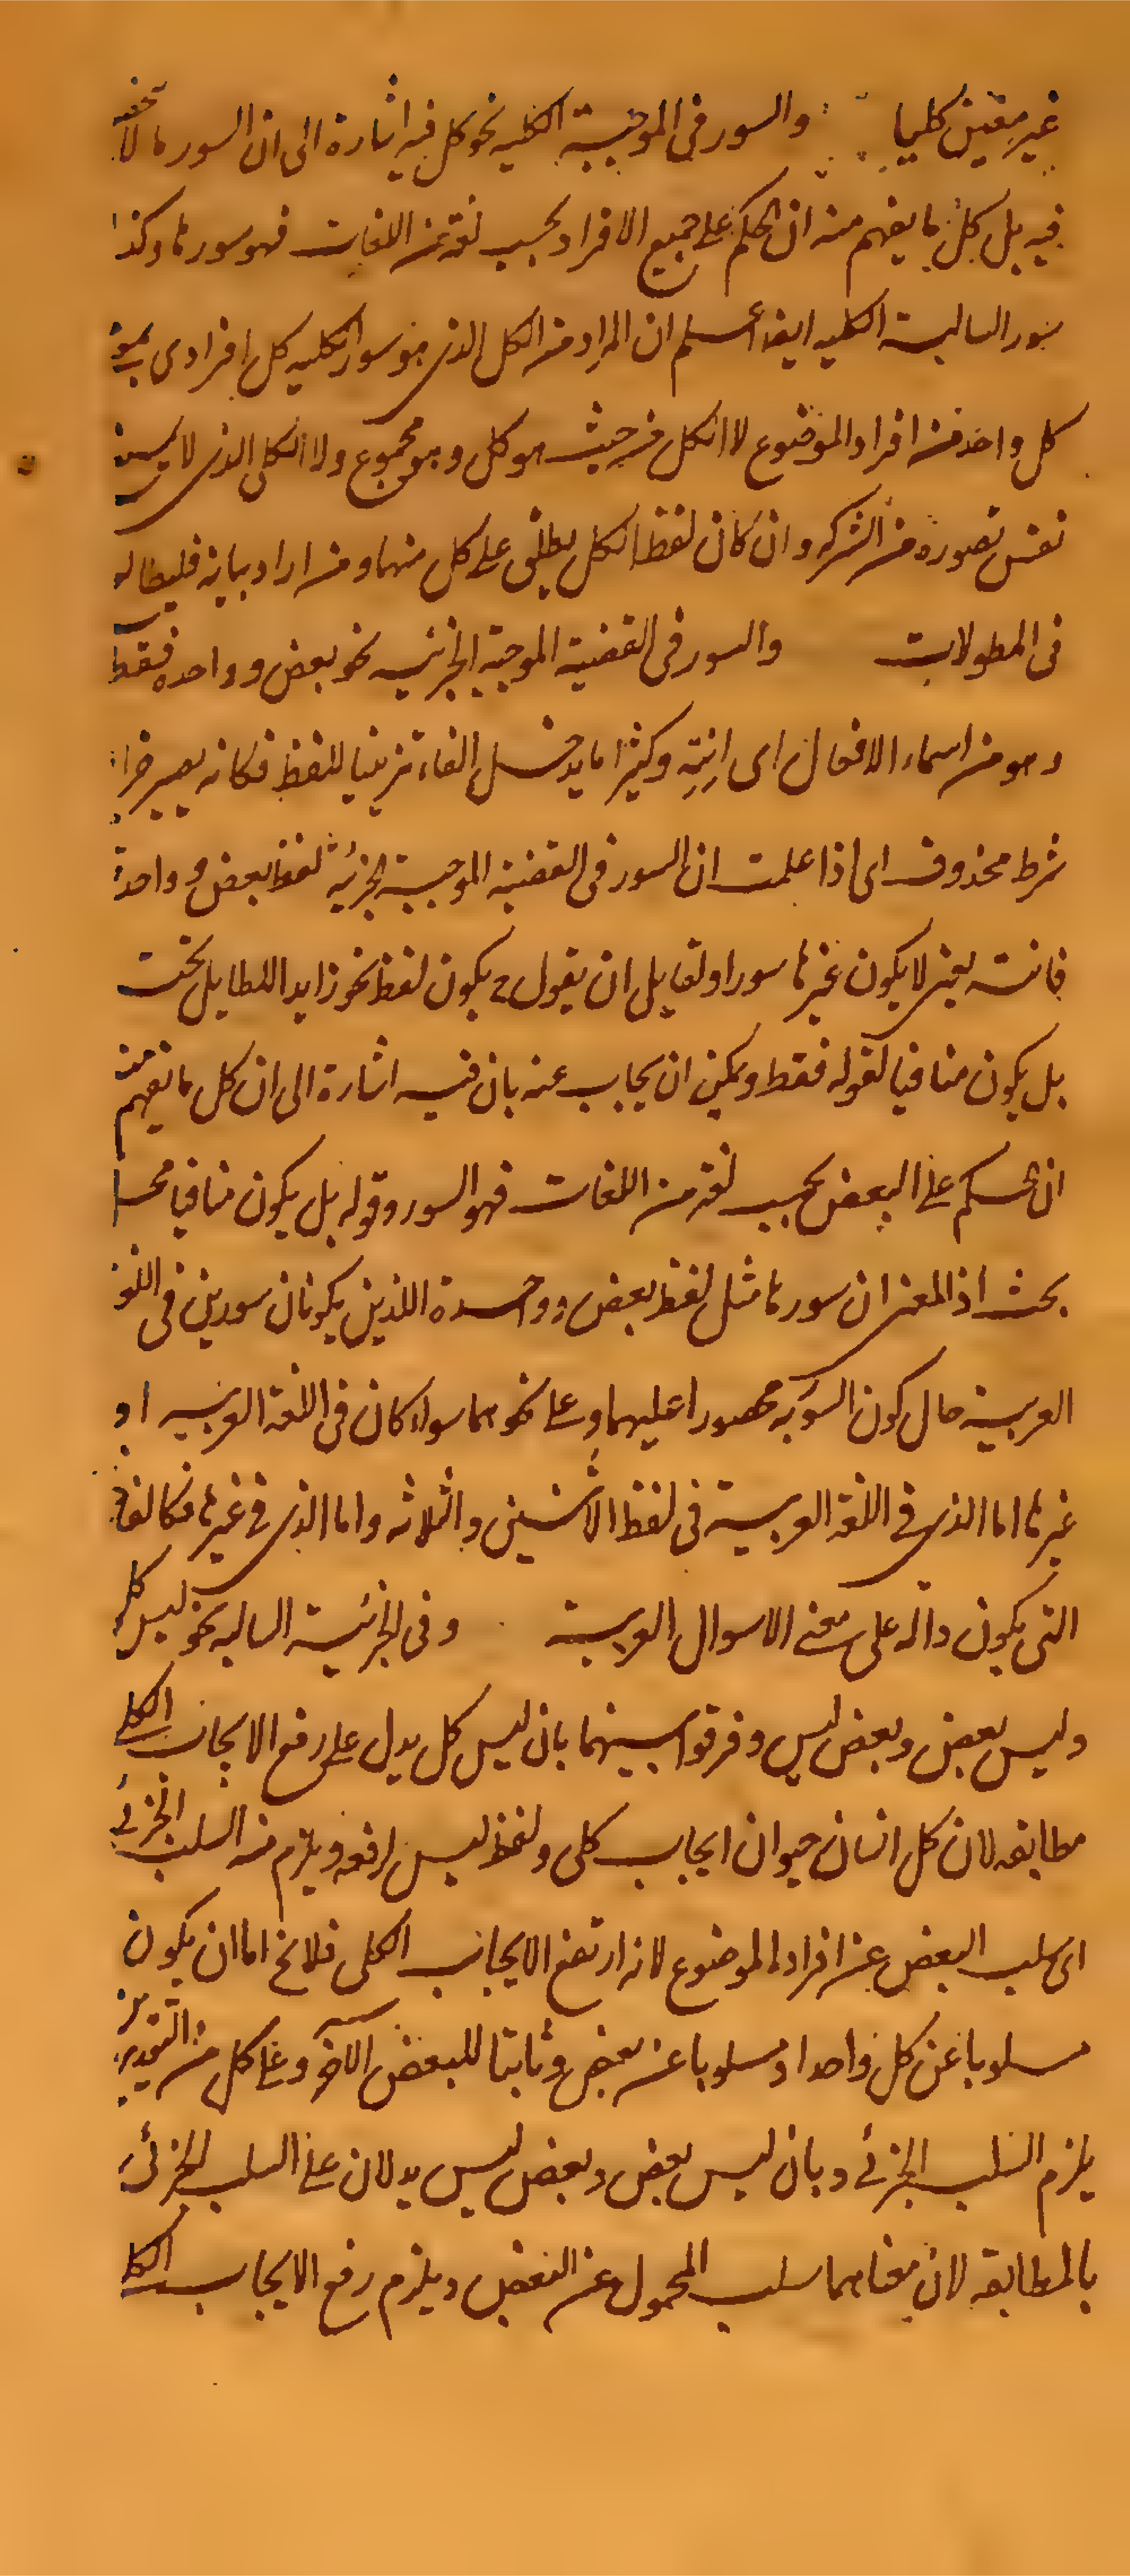 غير معين كليا والسور فى الموجبة الكلية نحو كل فيه اشارة الى ان السور ما لا تحقه
فيه بل كل ما يفهم منه ان الحكم على جميع الافراد بحسب لغة من اللغات فهو سورها وكذا
سور السالبة الكليه ايضا اعلم ان المراد من الكل الذى هو سور الكليه كل افرادى بمعنى
كل واحد من افراد الموضوع لا الكل من حيث هو كل وهو مجموع ولا الكلى الذى لا يمنع
نفس تصوره من الشركه وان كان لفظ الكل يطلق على كل منهما ومن اراد بيانه فليطالع
فى المطولات والسور فى القضية الموجبة الجزئيه نحو بعض وواحده فقط
وهو من اسماء الافعال اى انته وكثيرا ما يدخل الفاء تزيينا للفظ فكانه يصير جزاء
شرط محذوف اى اذا علمت ان السور فى القضية الموجبة الجزئيه لفظ بعض وواحدة
فانته يعنى لا يكون غيرها سورا ولقايل ان يقول ح يكون لفظ نحو زايد اللطايل تحت
بل يكون منافيا لقوله فقط ويمكن ان يجاب عنه بان فيه اشارة الى ان كل ما يفهم منه
ان الحكم على البعض بحسب لغة من اللغات فهو السور وقوله بل يكون منافيا محل
بحث اذ المعنى ان سورها مثل لفظ بعض وواحدة اللذين يكونان سورين فى اللغة
العربية حال كون السورية محصورا عليهما وعلى نحوهما سواء كان فى اللغة العربيه او
غيرها اما الذى فى اللغة العربية فى لفظ الاثنين والثلاثه واما الذى فى غيرها فكالفاظ
التى يكون دالة على معنى الاسوال العربية وفى الجزئية السالبه نحو ليس كل
وليس بعض وبعض ليس وفرقوا بينهما بان ليس كل يدل على رفع الايجاب الكلى
مطابقه لان كل انسان حيوان ايجاب كلى ولفظ ليس لرفعه ويلزم منه السلب الجزئى
اى سلب البعض عن افراد الموضوع لانه ارتفع الايجاب الكلى فلا يخ اما ان يكون
مسلوبا عن كل واحد او مسلوبا عن بعض وثابتا للبعض الآخر وعلى كل من التقديرين
يلزم السلب الجزئى وبان ليس بعض وبعض ليس يدلان على السلب الجزئى
بالمطابقه لان معناهما سلب المحمول عن البعض ويلزم رفع الايجاب الكلى